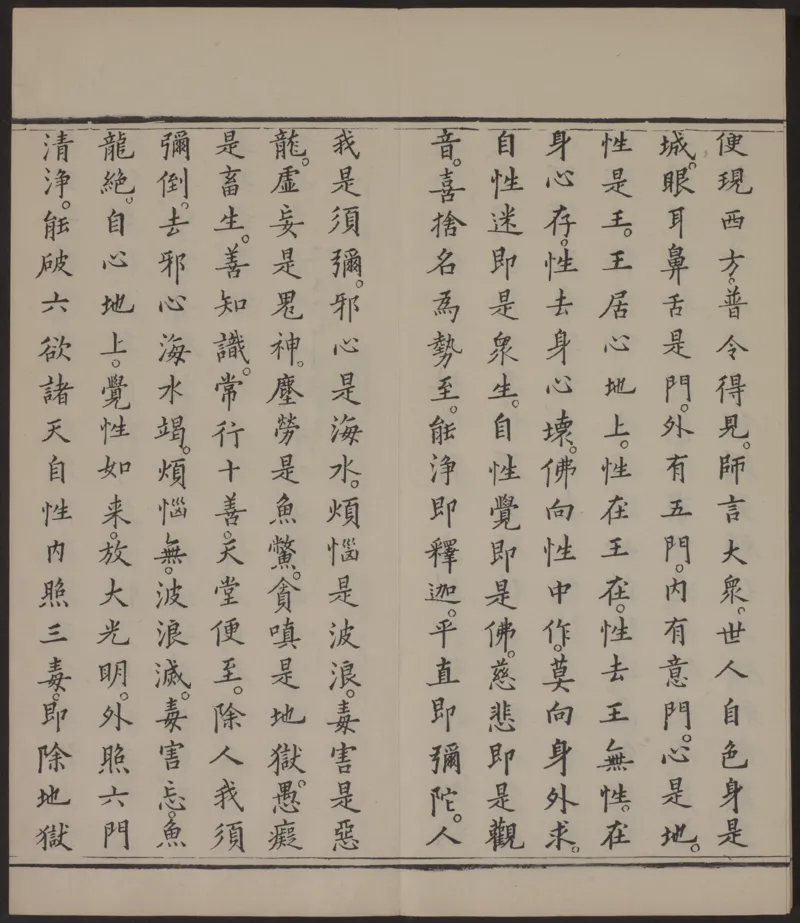 便現西方。普令得見。師言大衆。世人自色身是
城。眼耳鼻舌是門。外有五門。內有意門。心是地。
性是王。王居心地上。性在王在。性去王無。性在
身心存。性去身心壞。佛向性中作。莫向身外求。
自性迷即是衆生。自性覺即是佛。慈悲即是觀
音。喜捨名爲勢至。能淨即釋迦。平直即彌陀。人
我是須彌。邪心是海水。煩惱是波浪。毒害是惡
龍。虛妄是鬼神。塵勞是魚鱉。貪嗔是地獄。愚癡
是畜生。善知識。常行十善。天堂便至。除人我須
彌倒。去邪心海水竭。煩惱無。波浪滅。毒害忘。魚
龍絕。自心地上。覺性如来。放大光明。外照六門
清淨。能破六欲諸天自性內照三毒。即除地獄